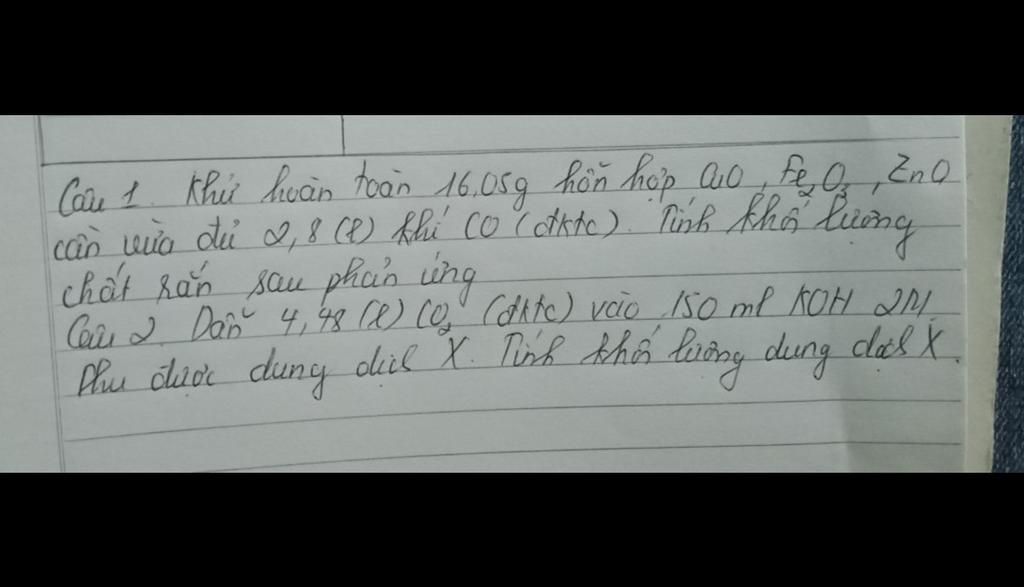 Câu 1. Khử hoàn toàn 16,05g hỗn hợp CuO, Fe₂O₃, ZnO
cần vừa đủ 2,8 (l) khí CO (đktc). Tính khối lượng
chất rắn sau phản ứng
Câu 2. Dẫn 4,48 (l) CO₂ (đktc) vào 150 ml KOH 2M,
thu được dung dịch X. Tính khối lượng dung dịch X.